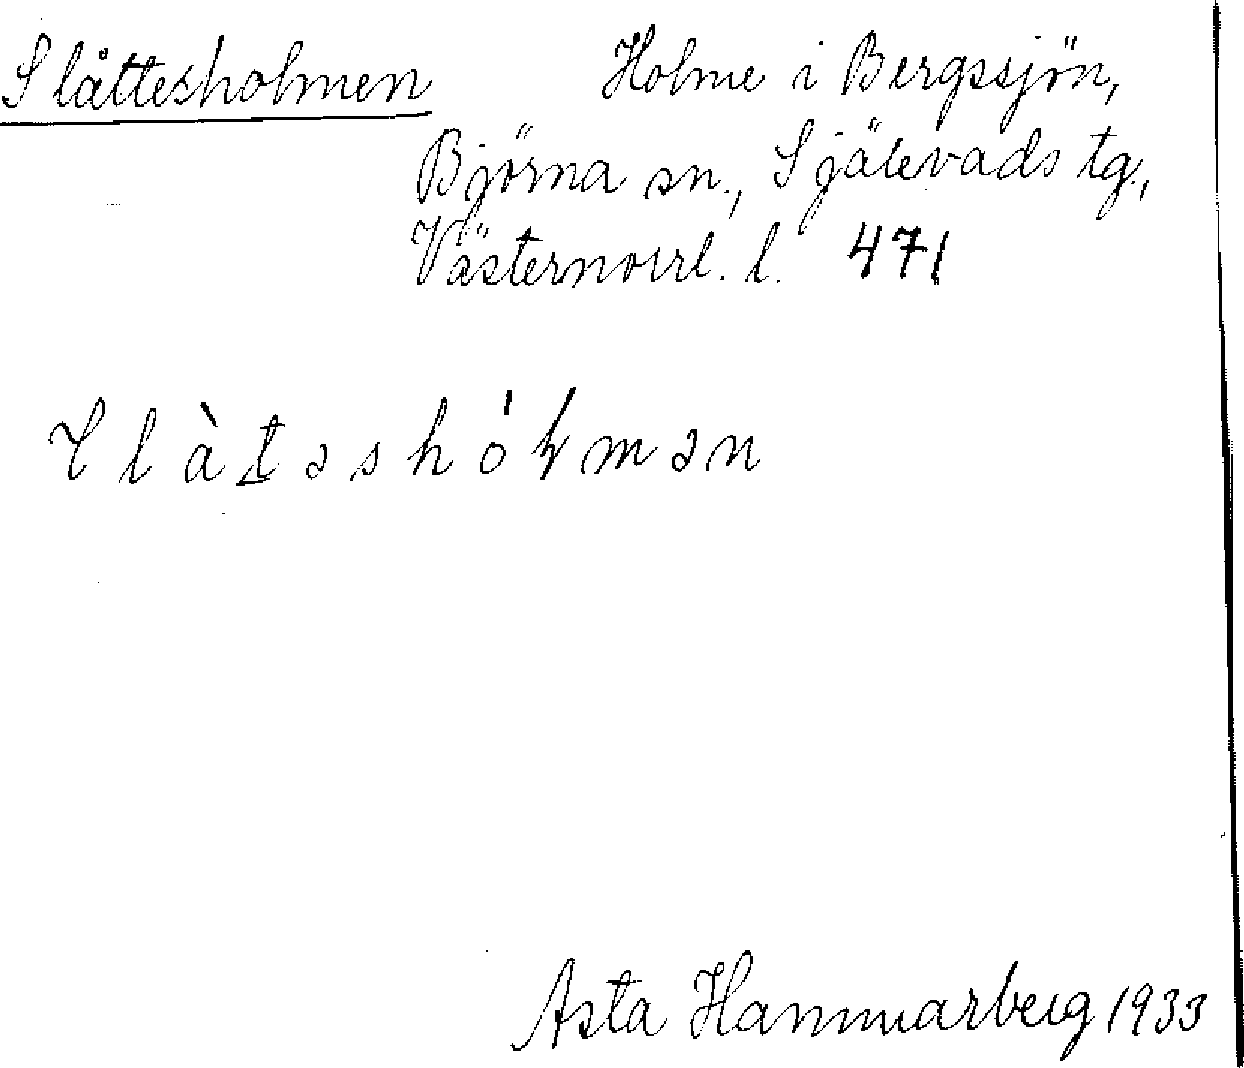 Slåttesholmen Holme i Bergssjön,
Björna sn., Själevads tg.,
Västernorrl. l. 471
Asta Hammarberg 1933